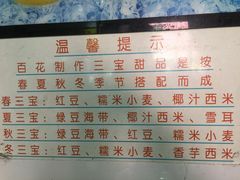 温馨提示
百花制作三宝甜品是按
春夏秋冬季节搭配而成
春三宝：红豆、糯米小麦、椰汁西米
夏三宝：绿豆海带、椰汁西米、雪耳
秋三宝：绿豆海带、红豆、糯米小麦
冬三宝：红豆、糯米小麦、香芋西米